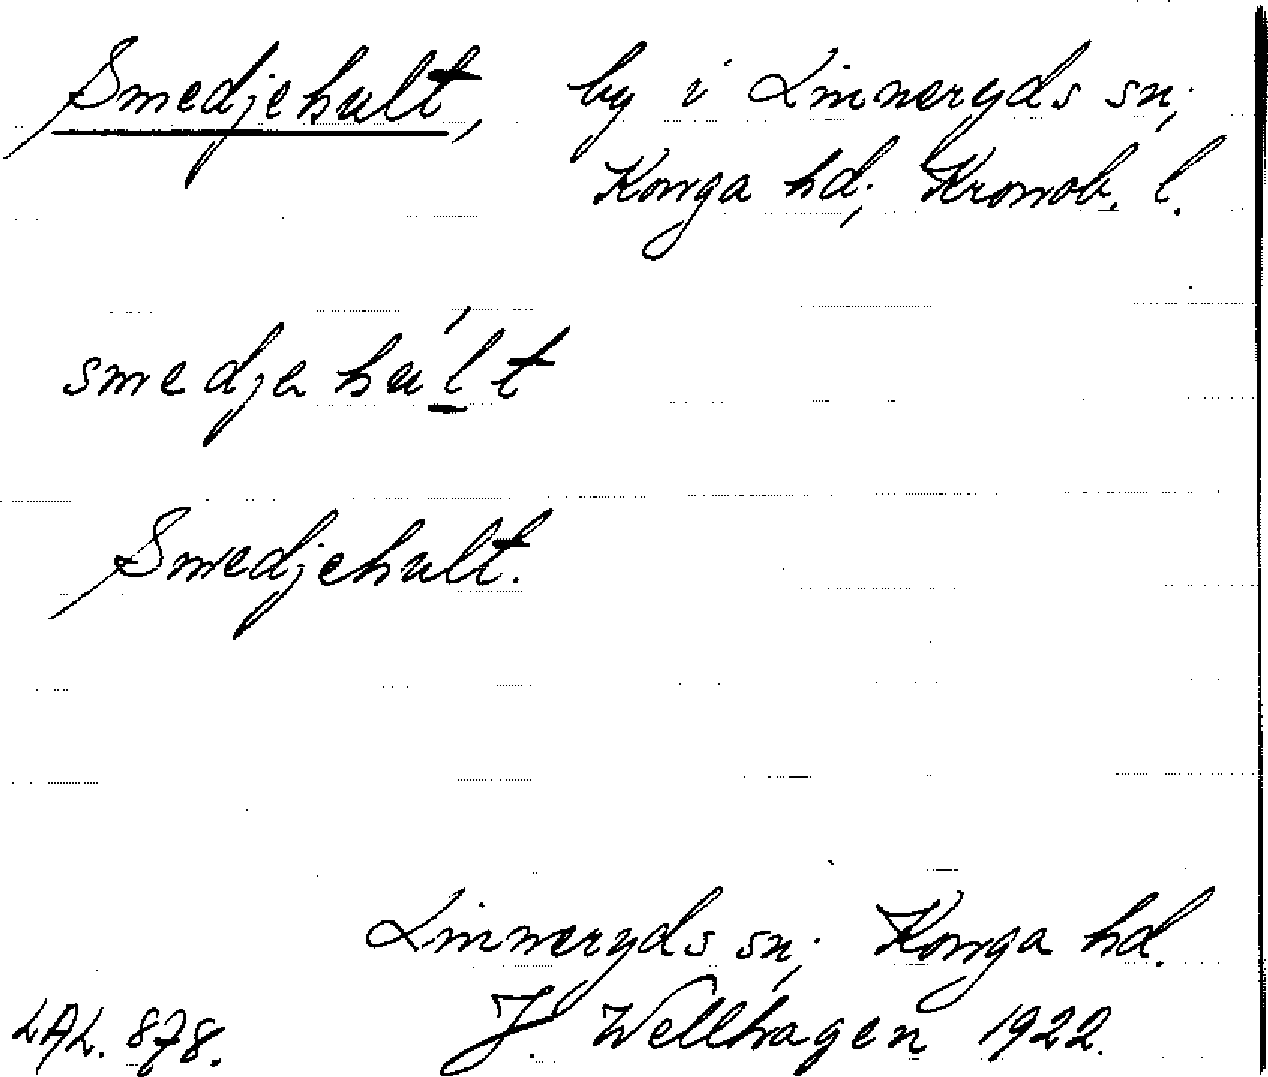 Smedjehult, by i Linneryds sn;
Konga hd; Kronob. l.
smedjahúlt
Smedjehult.
Linneryds sn; Konga hd.
LAL. 878. J Wellhagen 1922.